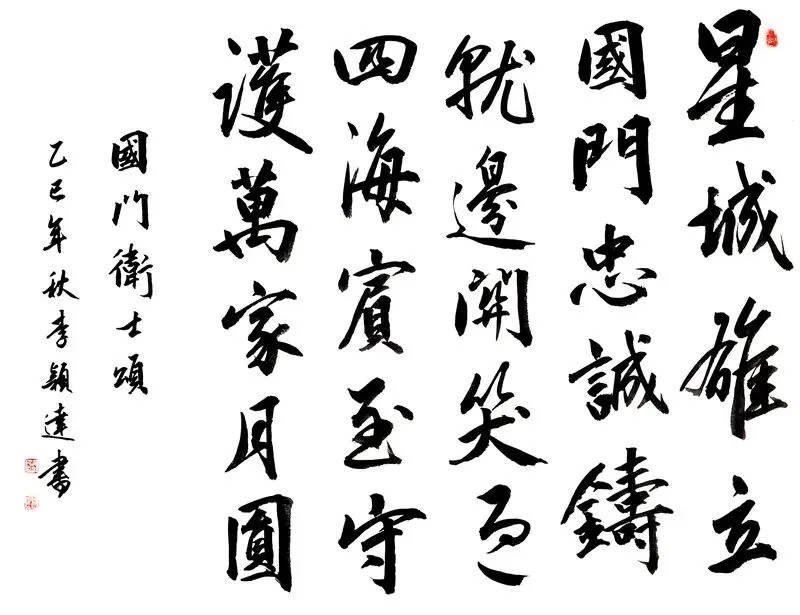 星城雄立
國門忠誠鑄
就邊關笑迎
四海賓至守
護萬家月圓
國門衛士頌
乙巳年秋李穎達書